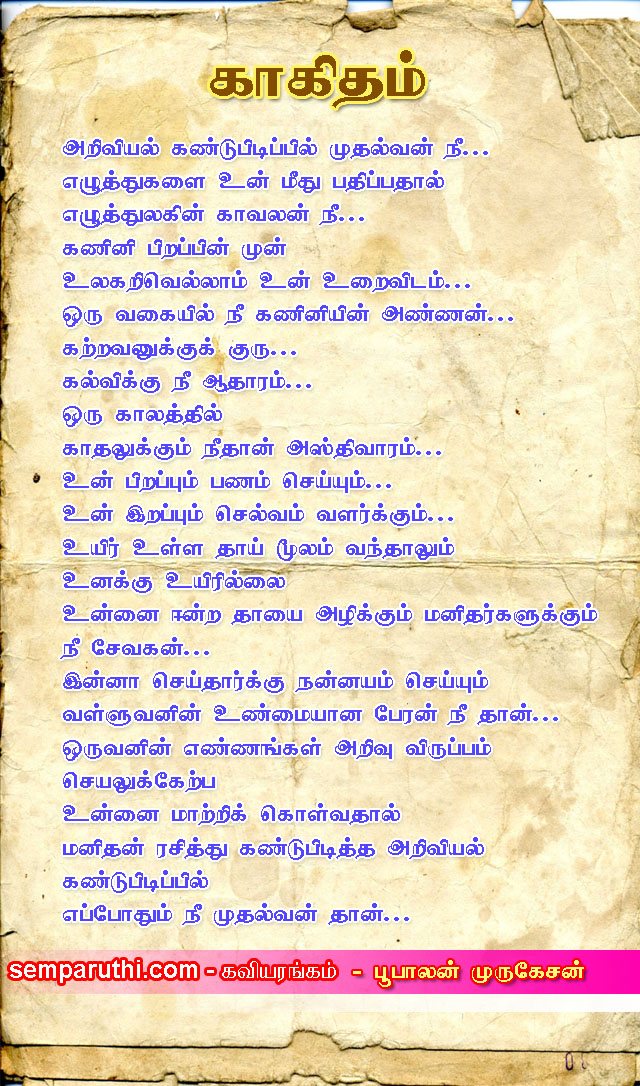 காகிதம்
அறிவியல் கண்டுபிடிப்பில் முதல்வன் நீ...
எழுத்துகளை உன் மீது பதிப்பதால்
எழுத்துலகின் காவலன் நீ...
கணினி பிறப்பின் முன்
உலகறிவெல்லாம் உன் உறைவிடம்...
ஒரு வகையில் நீ கணினியின் அண்ணன்...
கற்றவனுக்குக் குரு...
கல்விக்கு நீ ஆதாரம்...
ஒரு காலத்தில்
காதலுக்கும் நீதான் அஸ்திவாரம்...
உன் பிறப்பும் பணம் செய்யும்...
உன் இறப்பும் செல்வம் வளர்க்கும்...
உயிர் உள்ள தாய் மூலம் வந்தாலும்
உனக்கு உயிரில்லை
உன்னை ஈன்ற தாயை அழிக்கும் மனிதர்களுக்கும்
நீ சேவகன்...
இன்னா செய்தார்க்கு நன்னயம் செய்யும்
வள்ளுவனின் உண்மையான பேரன் நீ தான்...
ஒருவனின் எண்ணங்கள் அறிவு விருப்பம்
செயலுக்கேற்ப
உன்னை மாற்றிக் கொள்வதால்
மனிதன் ரசித்து கண்டுபிடித்த அறிவியல்
கண்டுபிடிப்பில்
எப்போதும் நீ முதல்வன் தான்...
semparuthi.com - கவியரங்கம் - பூபாலன் முருகேசன்